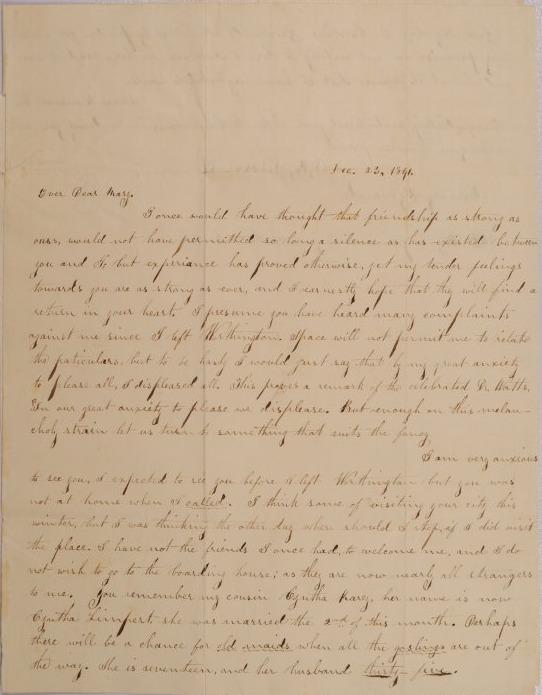 Dec. 23, 1841.
Ever Dear Mary.
I once would have thought that friendship as strong as
ours, would not have permitted so long a silence as has existed between
you and I, but experiance has proved otherwise, yet my tender feelings
towards you are as strong as ever, and I earnestly hope that they will find a
return in your heart. I presume you have heard many complaints
against me since I left Worthington. Space will not permit me to relate
the particulars, but to be hasty I would just say that by my great anxiety
to please all, I displeased all. This proves a remark of the celebrated Dr. Watts,
In our great anxiety to please we displease. But enough on this melan-
choly strain let us turn to something that suits the fancy.
I am very anxious
to see you, I expected to see you before I left Worthington but you was
not at home when I called. I think some of visiting your city this
winter, but I was thinking the other day where should I stop, if I did visit
the place. I have not the friends I once had, to welcome me, and I do
not wish to go to the boarding house; as they are now nearly all strangers
to me. You remember my cousin Cyntha her name is now
Cyntha she was married the 2nd of this month. Perhaps
there will be a chance for old maids when all the goslings are out of
the way. She is seventeen, and her husband thirty-five.